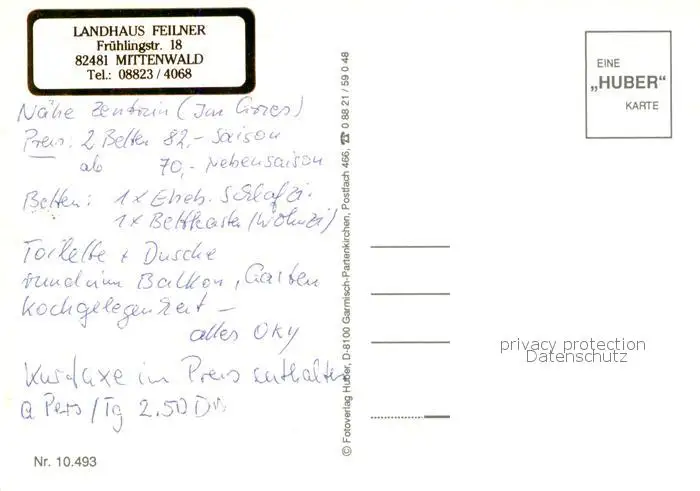 LANDHAUS FEILNER
Frühlingstr. 18
82481 MITTENWALD
Tel.: 08823 / 4068
Nähe Zentrum (Im Gries)
Preis: 2 Betten 82,- Saison
ab 70,- Nebensaison
Betten: 1x Eheb. Schlafzi.
1x Bettkasten (Wohnzi)
Toilette + Dusche
rundum Balkon, Garten
Kochgelegenheit –
alles Oky
Kurtaxe im Preis enthalten
a Pers/Tg 2.50 DM
Nr. 10.493
© Fotoverlag Huber, D-8100 Garmisch-Partenkirchen, Postfach 466, ☎ 0 88 21 / 59 0 48
EINE
„HUBER"
KARTE
privacy protection
Datenschutz